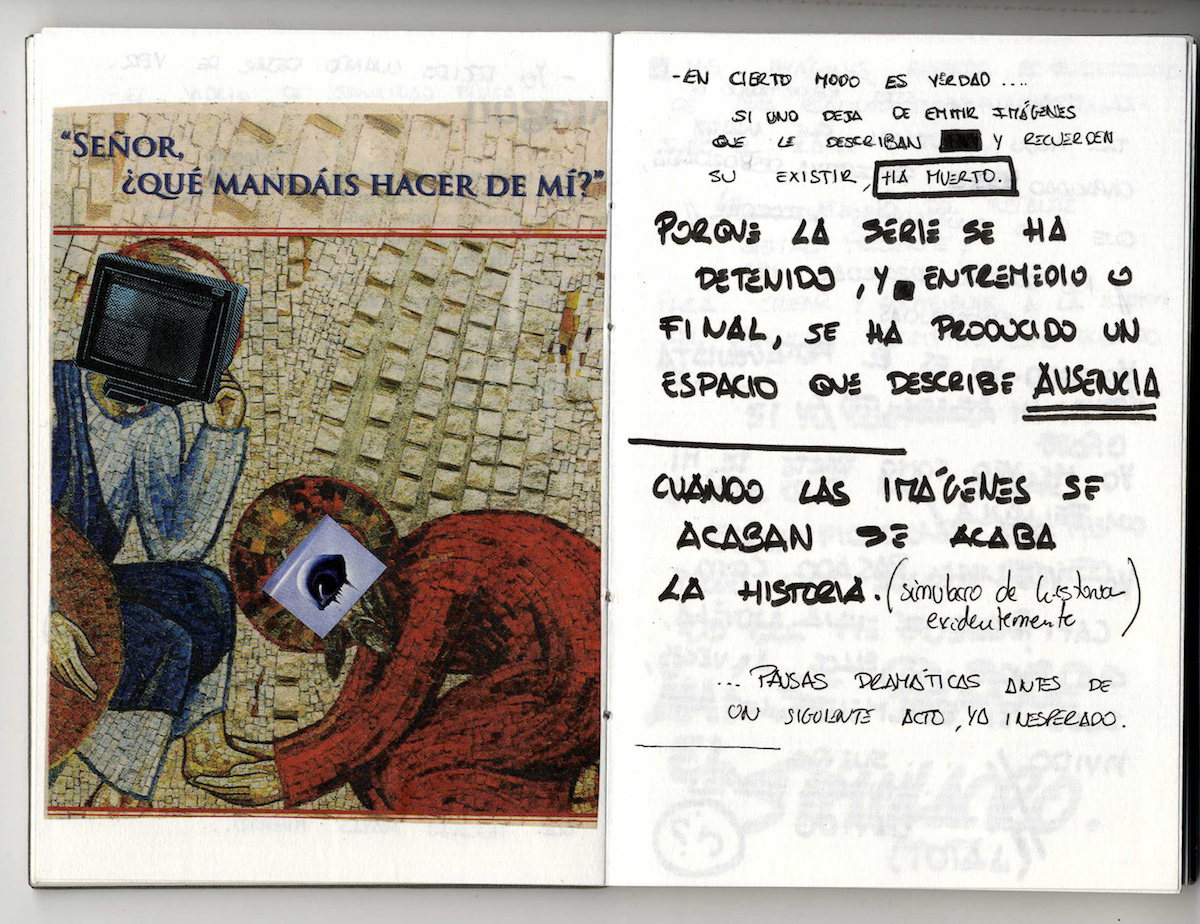 “SEÑOR,
¿QUÉ MANDÁIS HACER DE MÍ?”
-EN CIERTO MODO ES VERDAD ....
SI UNO DEJA DE EMITIR IMÁGENES
QUE LE DESCRIBAN Y RECUERDEN
SU EXISTIR, HA MUERTO.
PORQUE LA SERIE SE HA
DETENIDO, Y ENTREMEDIO O
FINAL, SE HA PRODUCIDO UN
ESPACIO QUE DESCRIBE AUSENCIA
CUANDO LAS IMÁGENES SE
ACABAN SE ACABA
LA HISTORIA. (simulacro de historia
evidentemente)
... PAUSAS DRAMÁTICAS ANTES DE
UN SIGUIENTE ACTO, YA INESPERADO.